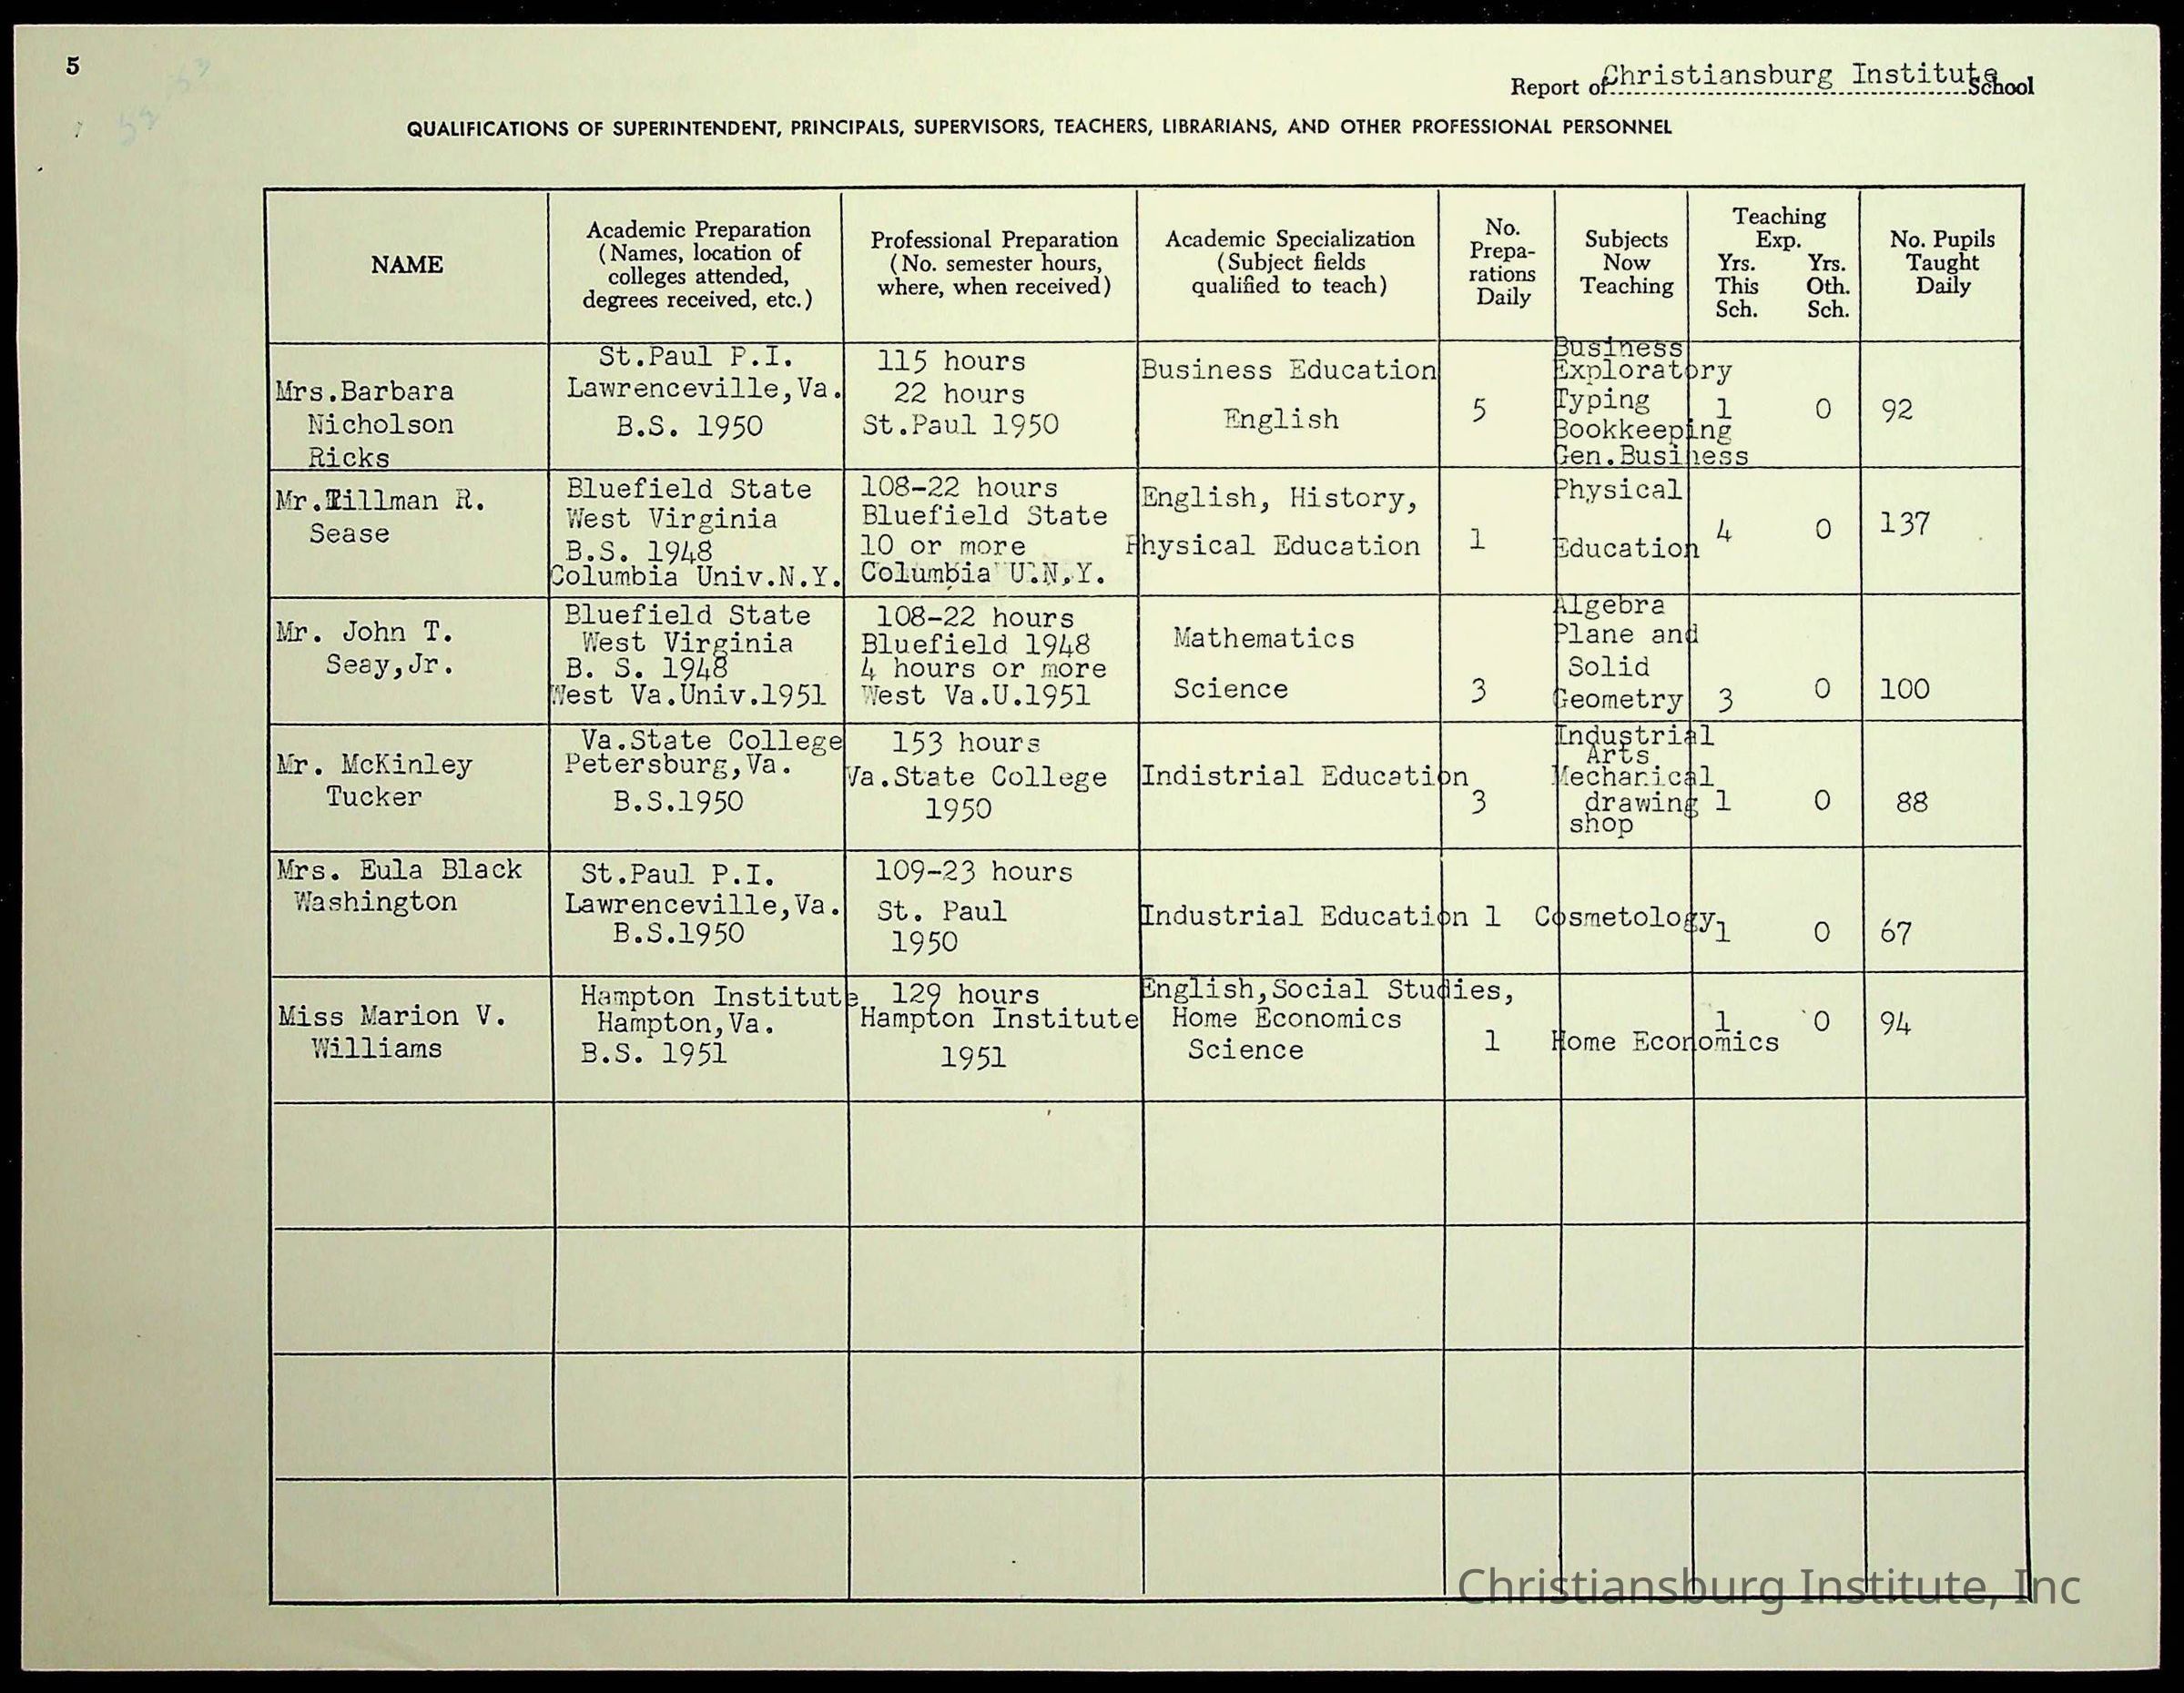 5
Report of Christiansburg Institute School
QUALIFICATIONS OF SUPERINTENDENT, PRINCIPALS, SUPERVISORS, TEACHERS, LIBRARIANS, AND OTHER PROFESSIONAL PERSONNEL
NAME
Academic Preparation
(Names, location of
colleges attended,
degrees received, etc.)
Professional Preparation
(No. semester hours,
where, when received)
Academic Specialization
(Subject fields
qualified to teach)
No.
Prepa-
rations
Daily
Subjects
Now
Teaching
Teaching
Exp.
Yrs.
This
Sch.
Yrs.
Oth.
Sch.
No. Pupils
Taught
Daily
Mrs.Barbara
Nicholson
Ricks
St.Paul P.I.
Lawrenceville,Va.
B.S. 1950
115 hours
22 hours
St.Paul 1950
Business Education
English
5
Business
Exploratory
Typing
Bookkeeping
Gen.Business
1
0
92
Mr.Tillman R.
Sease
Bluefield State
West Virginia
B.S. 1948
Columbia Univ.N.Y.
108-22 hours
Bluefield State
10 or more
Columbia U.N.Y.
English, History,
Physical Education
1
Physical
Education
4
0
137
Mr. John T.
Seay,Jr.
Bluefield State
West Virginia
B. S. 1948
West Va.Univ.1951
108-22 hours
Bluefield 1948
4 hours or more
West Va.U.1951
Mathematics
Science
3
Algebra
Plane and
Solid
Geometry
3
0
100
Mr. McKinley
Tucker
Va.State College
Petersburg,Va.
B.S.1950
153 hours
Va.State College
1950
Indistrial Education
3
Industrial
Arts
Mechanical
drawing
shop
1
0
88
Mrs. Eula Black
Washington
St.Paul P.I.
Lawrenceville,Va.
B.S.1950
109-23 hours
St. Paul
1950
Industrial Education
1
Cosmetology
1
0
67
Miss Marion V.
Williams
Hampton Institute
Hampton,Va.
B.S. 1951
129 hours
Hampton Institute
1951
English,Social Studies,
Home Economics
Science
1
Home Economics
1
0
94
Christiansburg Institute, Inc